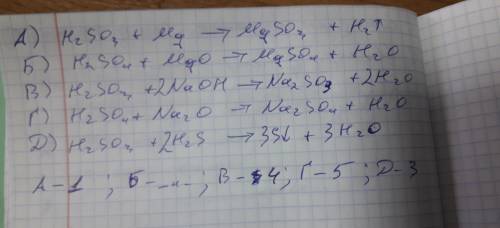 А) H₂SO₄ + Mg → MgSO₄ + H₂↑
Б) H₂SO₄ + MgO → MgSO₄ + H₂O
В) H₂SO₃ + 2NaOH → Na₂SO₃ + 2H₂O
Г) H₂SO₄ + Na₂O → Na₂SO₄ + H₂O
Д) H₂SO₃ + 2H₂S → 3S↓ + 3H₂O
А-1 ; Б - -"- ; В - 4 ; Г-5 ; Д-3